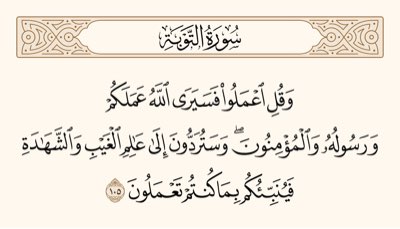 سُورَةُ التَّوْبَةِ
وَقُلِ ٱعْمَلُوا۟ فَسَيَرَى ٱللَّهُ عَمَلَكُمْ
وَرَسُولُهُۥ وَٱلْمُؤْمِنُونَ ۖ وَسَتُرَدُّونَ إِلَىٰ عَٰلِمِ ٱلْغَيْبِ وَٱلشَّهَٰدَةِ
فَيُنَبِّئُكُم بِمَا كُنتُمْ تَعْمَلُونَ ١٠٥